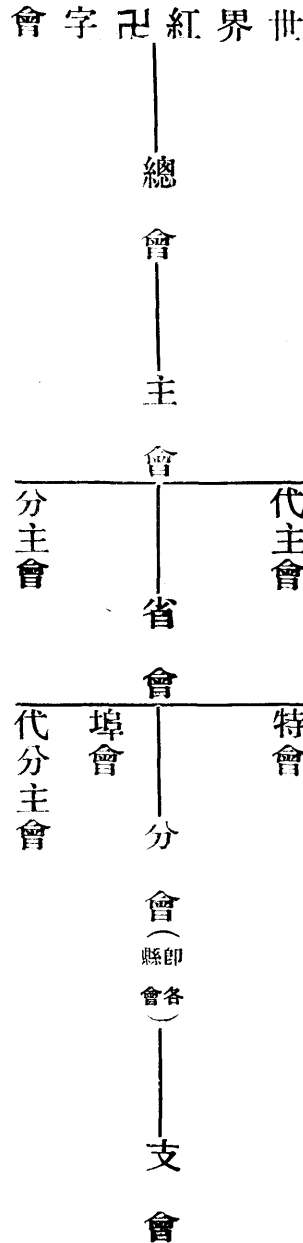 世界紅卍字會
總會
主會
代主會
分主會
省會
特會
埠會
代分主會
分會(即各縣會)
支會